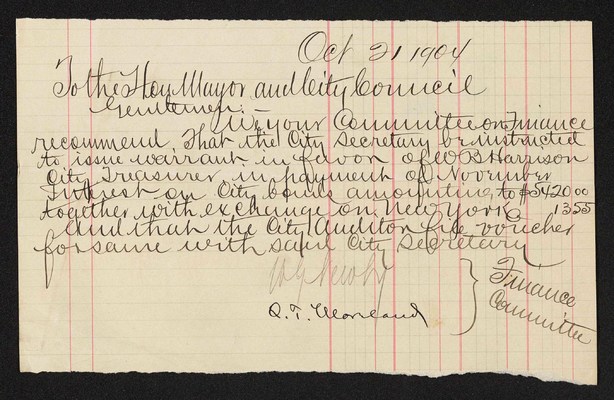 Oct 21 1904
To the Hoy Mayor and City Council
Gentlemen. —
We your Committee on Finance
recommend, That the City Secretary be instructed
to issue warrant in favor of W B Harrison
City Treasurer in payment of November
Interest on City bonds amounting to $5420.00
together with exchange on New York 13.55
and that the City Auditor file voucher
for same with said City Secretary
Q. T. Moreland
Finance
Committee